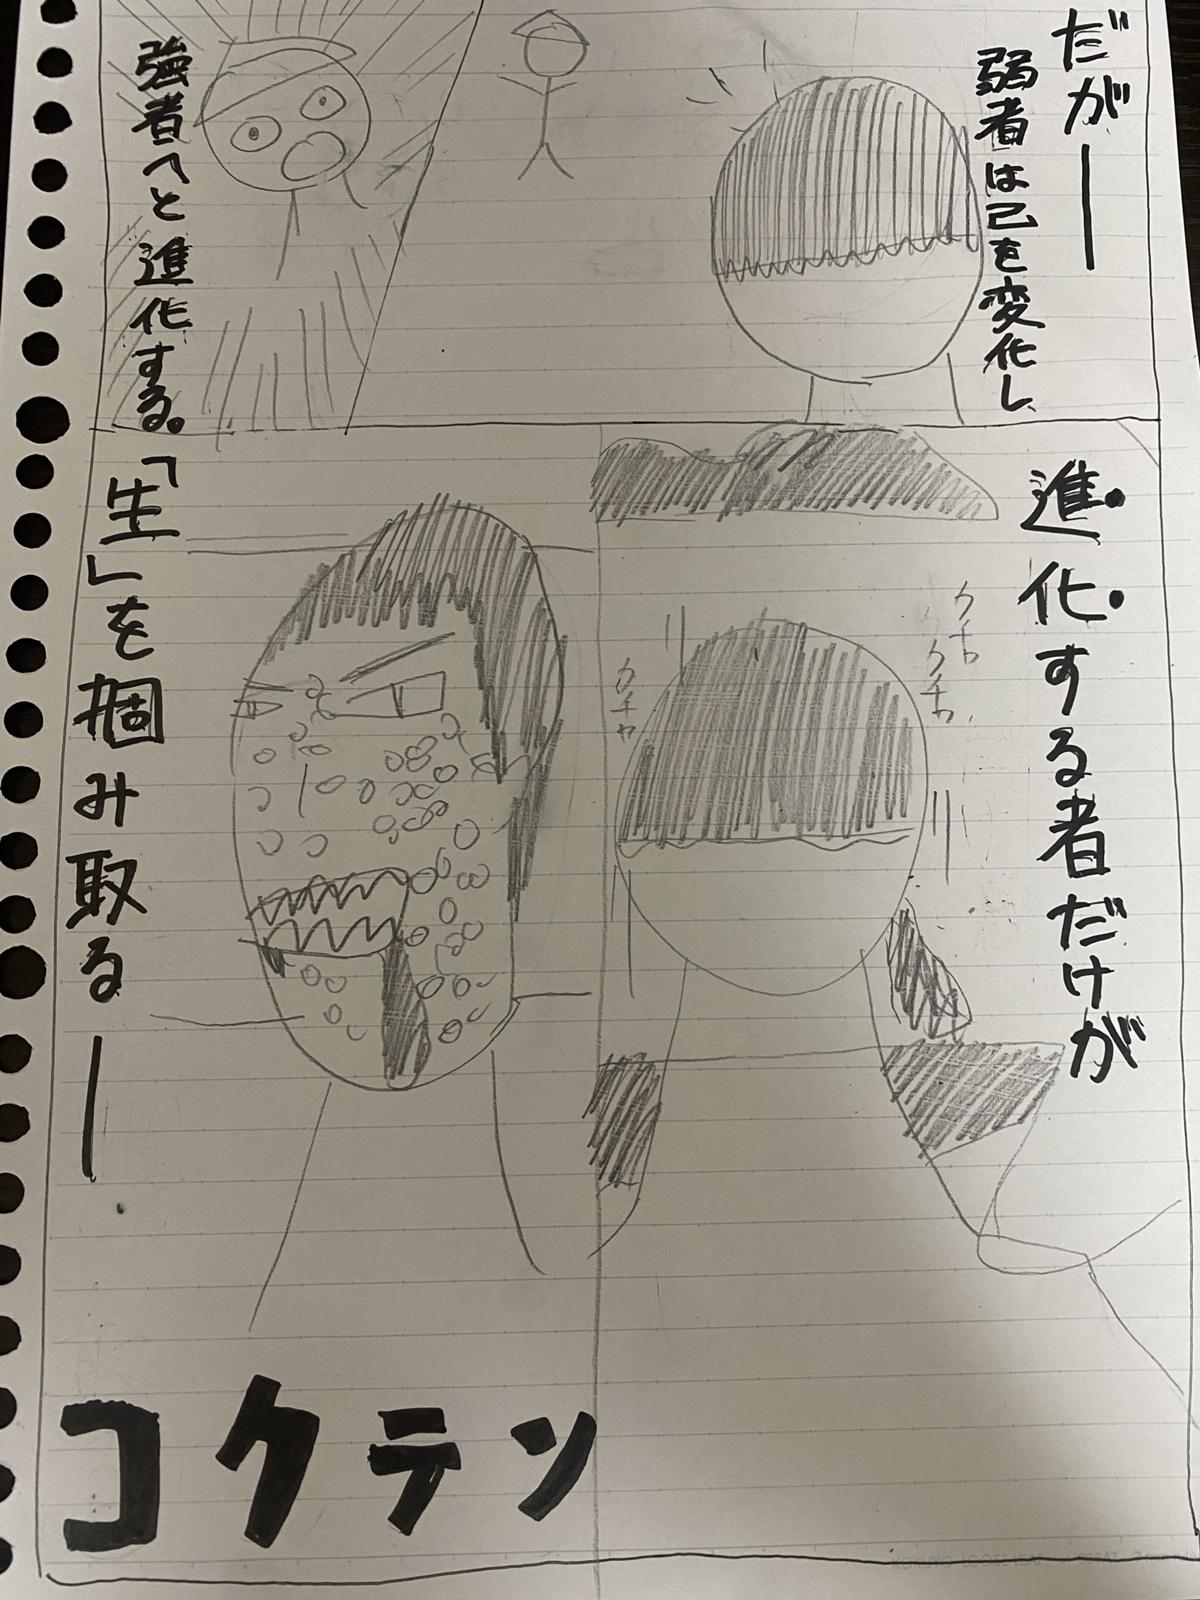 だが―
弱者は己を変化し
強者へと進化する。
進化する者だけが
クチャ
クチャ
クチャ
「生」を掴み取る―
コクテン